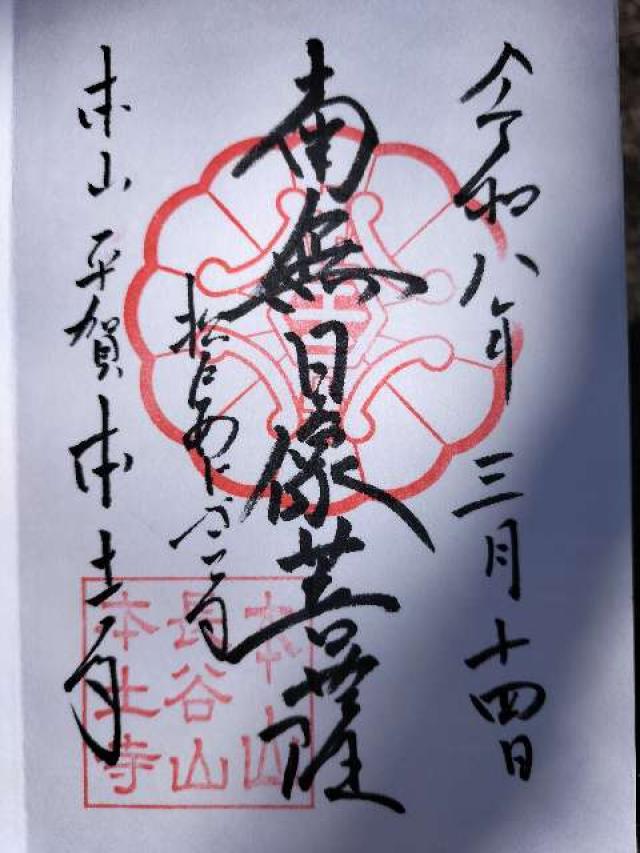 令和八年三月十四日
南無日像菩薩
本山平賀本土寺
本山
長谷山
本土寺